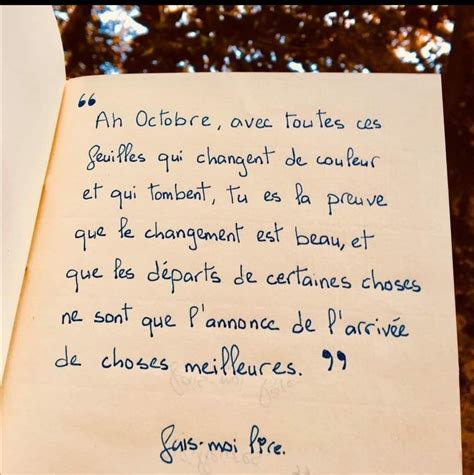 “
Ah Octobre, avec toutes ces
feuilles qui changent de couleur
et qui tombent, tu es la preuve
que le changement est beau, et
que les départs de certaines choses
ne sont que l'annonce de l'arrivée
de choses meilleures. ”
Suis-moi lire.